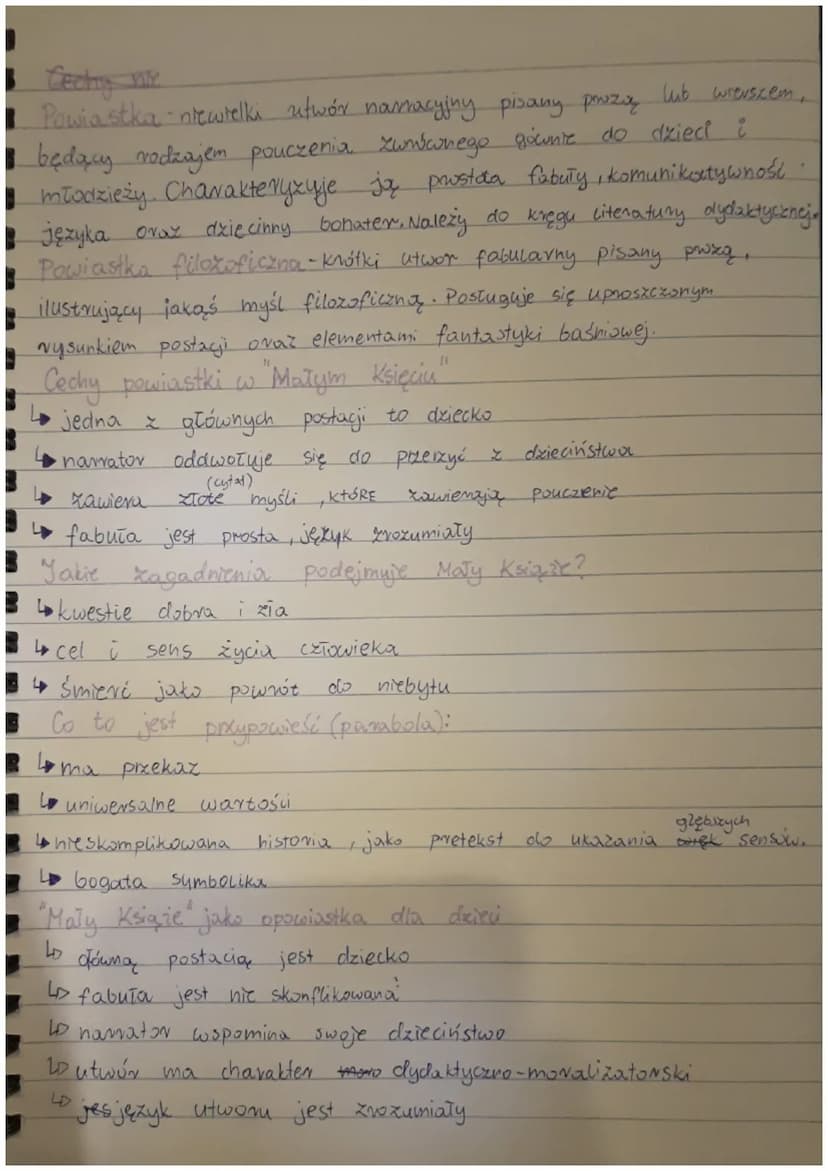 Cechy
Powiastka - niewielki utwór narracyjny pisany prozą lub wierszem,
będący rodzajem pouczenia zwróconego głównie do dzieci i
młodzieży. Charakteryzuje ją prostota fabuły, komunikatywność
języka oraz dziecinny bohater. Należy do kręgu literatury dydaktycznej.
Powiastka filozoficzna - krótki utwór fabularny pisany prozą,
ilustrujący jakąś myśl filozoficzną. Posługuje się uproszczonym
rysunkiem postaci oraz elementami fantastyki baśniowej.
Cechy powiastki w "Małym Księciu"
↳ jedna z głównych postacji to dziecko
↳ narrator oddwołuje się do przeżyć z dzieciństwa
(cytat)
↳ zawiera złote myśli, które zawierają pouczenie
↳ fabuła jest prosta, język zrozumiały
Jakie zagadnienia podejmuje Mały Książę?
↳ kwestie dobra i zła
↳ cel i sens życia człowieka
↳ śmierć jako powrót do niebytu
Co to jest przypowieść (parabola):
↳ ma przekaz
↳ uniwersalne wartości
↳ nieskomplikowana historia, jako pretekst do ukazania głębszych sensów.
↳ bogata symbolika
"Mały Książę" jako opowiastka dla dzieci
↳ główną postacią jest dziecko
↳ fabuła jest nie skonflikowana
↳ narrator wspomina swoje dzieciństwo
↳ utwór ma charakter moro dydaktyczno-moralizatorski
↳ jes język utworu jest zrozumiały